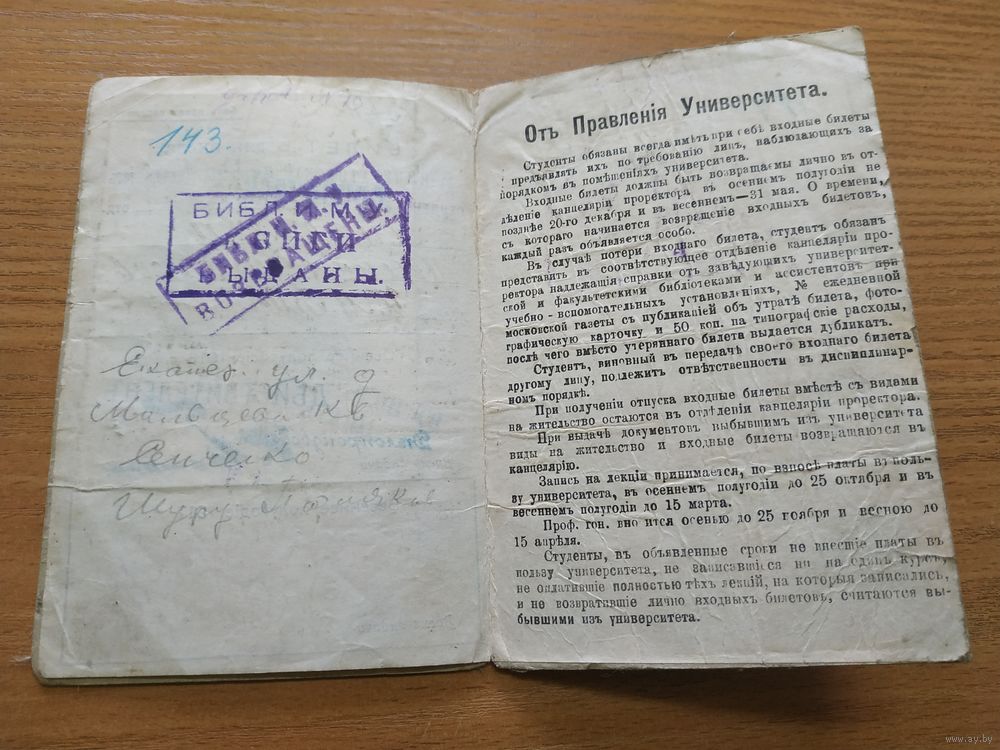 143.
БИБЛ. И. М. У.
КНИГИ
ВЫДАНЫ.
КНИГИ
ВОЗВРАЩЕНЫ.
ул. д
Мальцева Кв
Сенченко
Шуру
Отъ Правленія Университета.
Студенты обязаны всегда имѣть при себѣ входные билеты
и предъявлять ихъ по требованію лицъ, наблюдающихъ за
порядкомъ въ помѣщеніяхъ университета.
Входные билеты должны быть возвращаемы лично въ от-
дѣленіе канцеляріи проректора въ осеннемъ полугодіи не
позднѣе 20-го декабря и въ весеннемъ—31 мая. О времени,
съ котораго начинается возвращеніе входныхъ билетовъ,
каждый разъ объявляется особо.
Въ случаѣ потери входнаго билета, студентъ обязанъ
представить въ соотвѣтствующее отдѣленіе канцеляріи про-
ректора надлежащія справки отъ завѣдующихъ университет-
ской и факультетскими библіотеками и ассистентовъ при
учебно-вспомогательныхъ установленіяхъ, № ежедневной
московской газеты съ публикаціей объ утратѣ билета, фото-
графическую карточку и 50 коп. на типографскіе расходы,
послѣ чего вмѣсто утеряннаго билета выдается дубликатъ.
Студентъ, виновный въ передачѣ своего входнаго билета
другому лицу, подлежитъ отвѣтственности въ дисциплинар-
номъ порядкѣ.
При полученіи отпуска входные билеты вмѣстѣ съ видами
на жительство остаются въ отдѣленіи канцеляріи проректора.
При выдачѣ документовъ выбывшимъ изъ университета
виды на жительство и входные билеты возвращаются въ
канцелярію.
Запись на лекціи принимается, по взносѣ платы въ поль-
зу университета, въ осеннемъ полугодіи до 25 октября и въ
весеннемъ полугодіи до 15 марта.
Проф. гон. вносится осенью до 25 ноября и весною до
15 апрѣля.
Студенты, въ объявленные сроки не внесшіе платы въ
пользу университета, не записавшіеся ни на одинъ курсъ,
не оплатившіе полностью тѣхъ лекцій, на которыя записались,
и не возвратившіе лично входныхъ билетовъ, считаются вы-
бывшими изъ университета.
www.ay.by